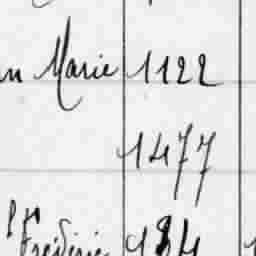 n Marie 1122
1477
Frédéric